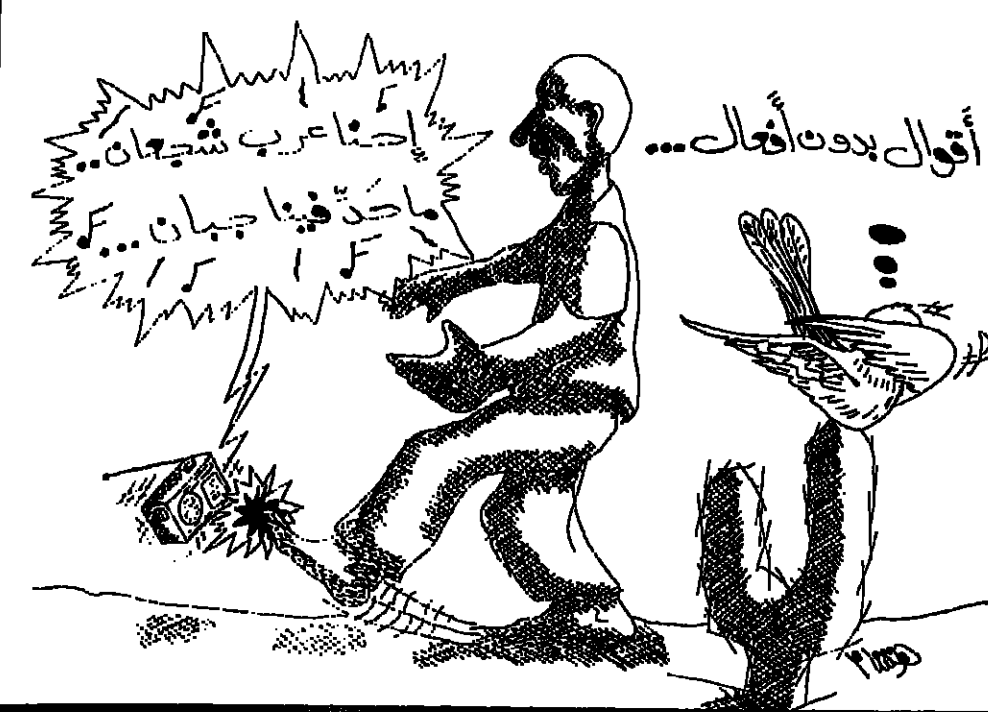 أقوال بدون أفعال...
إحنا عرب شجعان..
ماحدّ فينا جبان...